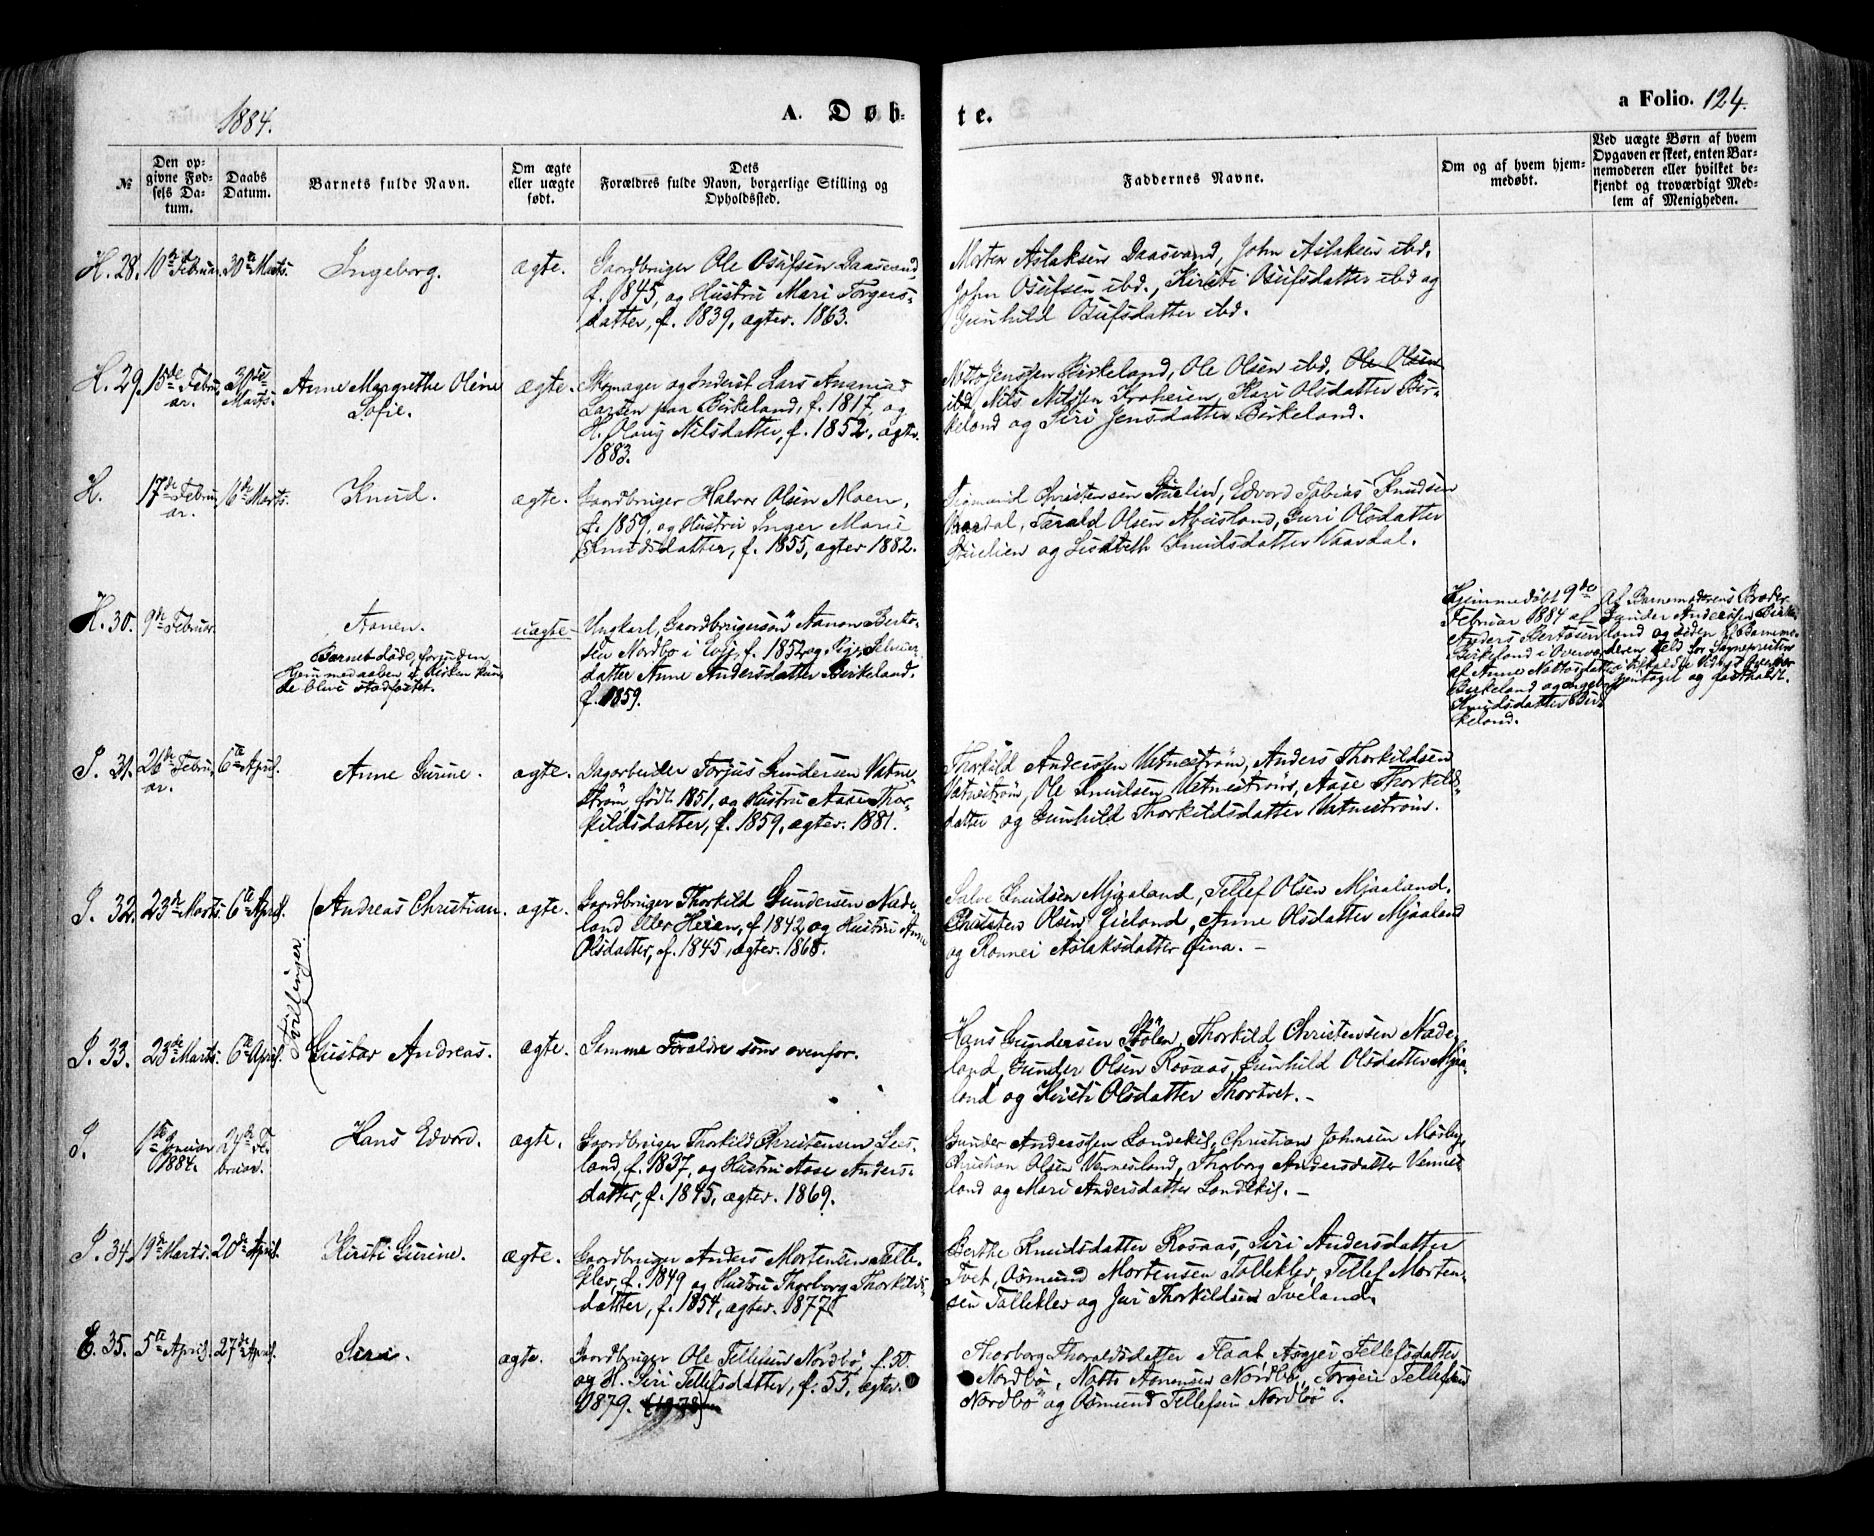 1884.
A. Døb-
te.
a Folio. 124.
№
Den op-
givne Fød-
sels Da-
tum.
Daabs
Datum.
Barnets fulde Navn.
Om ægte
eller uægte
født.
Dets
Forældres fulde Navn, borgerlige Stilling og
Opholdssted.
Faddernes Navne.
Om og af hvem hjem-
medøbt.
Ved uægte Børn af hvem
Opgaven er skeet, enten Bar-
nemoderen eller hvilket be-
kjendt og troværdigt Med-
lem af Menigheden.
H. 28. 10de Februar. 30te Marts. Ingeborg. ægte.
Gaardbruger Ole Osufsen Daasvand
f. 1845, og Hustru Mari Torgers-
datter, f. 1839, ægtev. 1863.
Morten Aslaksen Daasvand, John Aslaksen ibd.
John Osufsen ibd., Kirsti Osufsdatter ibd og
Gunhild Osufsdatter ibd.
H. 29. 15de Febru-
ar. 30te
Marts. Anne Margrethe Oline
Sofie. ægte.
Skomager og Inderst Lars Ananias
Larsen paa Birkeland, f. 1817, og
H. Olaug Nilsdatter, f. 1852, ægtv.
1883.
Notto Jenssen Birkeland, Ole Olsen ibd. Ole Olsen
ibd Nils Nilssen Kroheien, Kari Olsdatter Bir-
keland og Siri Jensdatter Birkeland.
H. 17de Febru-
ar. 16de Marts. Knud. ægte.
Gaardbruger Halvor Olsen Moen,
f. 1859, og Hustru Inger Marie
Knudsdatter, f. 1855, ægtev 1882.
Christensen Edvord Tobias Knudsen
Vaardal, Tarald Olsen Abusland, Guri Olsdatter
og Lisabeth Knudsdatter Vaardal.
H. 30. 9de Februar. Aanen.
Barnet døde, forinden
Hjemmedaaben i Kirken kun-
de blive stadfæstet.
uægte
Ungkarl, Gaardbrugersøn Aanon Berto-
sen Nordbø i Evje, f. 1852, og Pige,
datter Anne Andersdatter Birkeland.
f. 1859.
Hjemmedøbt 9de
Februar 1884 af
Anders Bertosen
Birkeland i Overværelse
af Anne Nottosdatter
Birkeland og Ingeborg
Knudsdatter Bir-
keland.
Af Barnemoderens Broder
Gunder Andersen Birke-
land og siden af Barnemo-
deren selv for Sognepræsten
gjentaget og fastholdt.
I. 31. 26de Febru-
ar. 6te April. Anne Gurine. ægte.
Dagarbeider Torjus Gundersen Vatne-
strøm, født 1851, og Hustru Aase Thor-
kildsdatter, f. 1859, ægtev. 1881.
Thorkild Anderssen Vatnestrøm, Anders Thorkildsen
Vatnestrøm, Ole Knudsen Vatnestrøm, Aase Thorkilds-
datter og Gunhild Thorkildsdatter Vatnestrøm.
I. 32. 23de Marts. 6te April. Andreas Christian. ægte.
Tvillinger.
Gaardbruger Thorkild Gundersen Nade-
land eller Heien, f 1842, og Hustru Anne
Olsdatter, f. 1845, ægtev. 1868.
Salve Knudsen Mjaaland, Tellef Olsen Mjaaland,
Christen Olsen Eieland, Anne Olsdatter Mjaaland
og Ronnei Aslaksdatter Eina. –
I. 33. 23de Marts. 6te April. Gustav Andreas. ægte.
Samme Forældre som ovenfor.
Hans Gundersen Stølen, Thorkild Christensen Nade-
land, Gunder Olsen Rosaas, Gunhild Olsdatter Mjaa-
land og Kirsti Olsdatter Thortvet. –
I. 1ste Januar
1884. 24de Fe-
bruar. Hans Edvord. ægte.
Gaardbruger Thorkild Christensen
land, f. 1837, og Hustru Aase Anders-
datter, f. 1845, ægtev. 1869.
Gunder Anderssen Landekil, Christian Johnsen Mosby,
Christian Olsen Vennesland, Thorborg Andersdatter Vennes-
land og Mari Andersdatter Landekil. –
I. 34. 19de Marts. 20de April. Kirsti Gurine. ægte.
Gaardbruger Anders Mortensen Talle-
klev, f. 1849 og Hustru Thorborg Thorkilds-
datter, f. 1854, ægtev. 1877.
Berthe Knudsdatter Rosaas, Siri Andersdatter
Tvet, Osmund Mortensen Talleklev, Tellef Morten-
sen Talleklev og Juri Thorkildsen Tveland.
E. 35. 5te April. 27de April. Siri. ægte.
Gaardbruger Ole Tellefsen Nordbø, f. 50.
og H. Siri Tellefsdatter, f. 55, ægtev.
1879. (1878)
Thorborg Thoraldsdatter Flaat Asgjer Tellefsdatter
Nordbø, Notto Aanensen Nordbø, Torgeir Tellefsen
Nordbø og Osmund Tellefsen Nordbø.